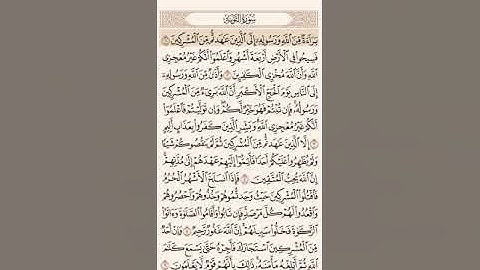 سُورَةُ التَّوْبَةِ
بَرَاءَةٌ مِّنَ اللَّهِ وَرَسُولِهِ إِلَى الَّذِينَ عَاهَدتُّم مِّنَ الْمُشْرِكِينَ ١
فَسِيحُوا فِي الْأَرْضِ أَرْبَعَةَ أَشْهُرٍ وَاعْلَمُوا أَنَّكُمْ غَيْرُ مُعْجِزِي
اللَّهِ وَأَنَّ اللَّهَ مُخْزِي الْكَافِرِينَ ٢ وَأَذَانٌ مِّنَ اللَّهِ وَرَسُولِهِ
إِلَى النَّاسِ يَوْمَ الْحَجِّ الْأَكْبَرِ أَنَّ اللَّهَ بَرِيءٌ مِّنَ الْمُشْرِكِينَ
وَرَسُولُهُ فَإِن تُبْتُمْ فَهُوَ خَيْرٌ لَّكُمْ وَإِن تَوَلَّيْتُمْ فَاعْلَمُوا
أَنَّكُمْ غَيْرُ مُعْجِزِي اللَّهِ وَبَشِّرِ الَّذِينَ كَفَرُوا بِعَذَابٍ أَلِيمٍ
٣ إِلَّا الَّذِينَ عَاهَدتُّم مِّنَ الْمُشْرِكِينَ ثُمَّ لَمْ يَنقُصُوكُمْ شَيْئًا
وَلَمْ يُظَاهِرُوا عَلَيْكُمْ أَحَدًا فَأَتِمُّوا إِلَيْهِمْ عَهْدَهُمْ إِلَى مُدَّتِهِمْ
إِنَّ اللَّهَ يُحِبُّ الْمُتَّقِينَ ٤ فَإِذَا انسَلَخَ الْأَشْهُرُ الْحُرُمُ
فَاقْتُلُوا الْمُشْرِكِينَ حَيْثُ وَجَدتُّمُوهُمْ وَخُذُوهُمْ وَاحْصُرُوهُمْ
وَاقْعُدُوا لَهُمْ كُلَّ مَرْصَدٍ فَإِن تَابُوا وَأَقَامُوا الصَّلَاةَ وَآتَوُا
الزَّكَاةَ فَخَلُّوا سَبِيلَهُمْ إِنَّ اللَّهَ غَفُورٌ رَّحِيمٌ ٥ وَإِنْ أَحَدٌ
مِّنَ الْمُشْرِكِينَ اسْتَجَارَكَ فَأَجِرْهُ حَتَّى يَسْمَعَ كَلَامَ
اللَّهِ ثُمَّ أَبْلِغْهُ مَأْمَنَهُ ذَلِكَ بِأَنَّهُمْ قَوْمٌ لَّا يَعْلَمُونَ ٦